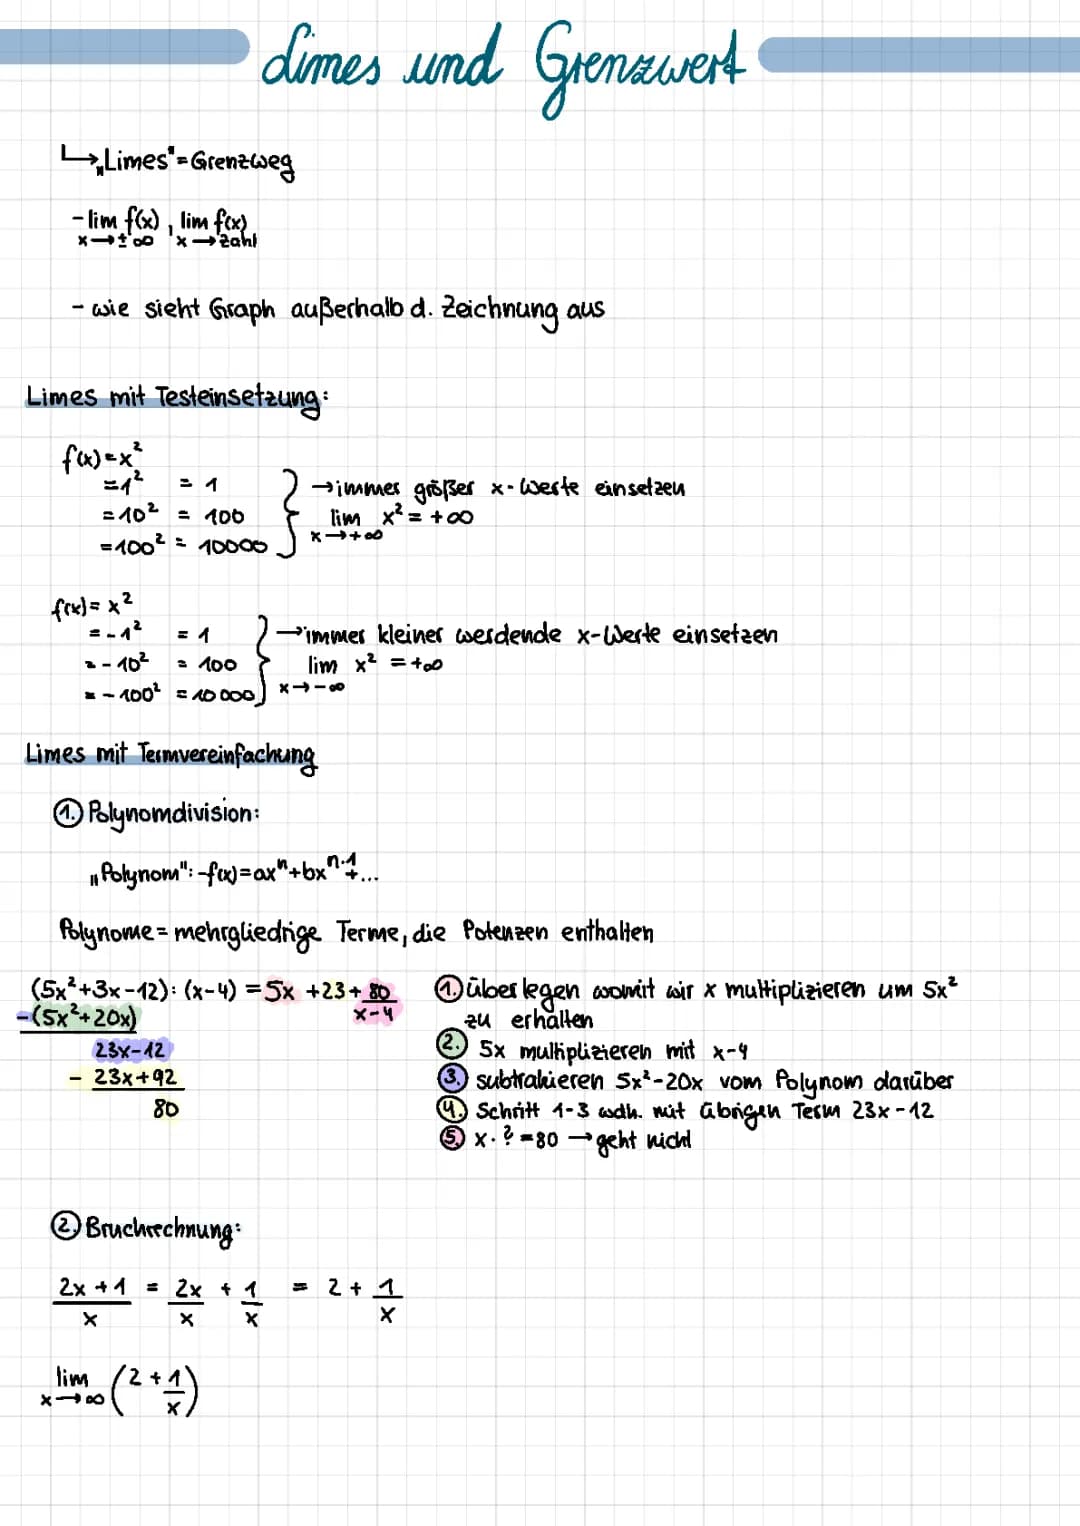 Limes und Grenzwert
↳ „Limes" = Grenzweg
- lim f(x) , lim f(x)
x→±∞ x→Zahl
- wie sieht Graph außerhalb d. Zeichnung aus
Limes mit Testeinsetzung:
f(x)=x²
=1² = 1
=10² = 100
=100² = 10000
→immer größer x-Werte einsetzen
lim x² = +∞
x→+∞
f(x)= x²
= -1² = 1
= -10² = 100
= -100² = 10 000
→immer kleiner werdende x-Werte einsetzen
lim x² = +∞
x→-∞
Limes mit Termvereinfachung
1. Polynomdivision:
„Polynom": -f(x)=ax^n+bx^n-1+...
Polynome = mehrgliedrige Terme, die Potenzen enthalten
(5x²+3x-12):(x-4) = 5x +23+ 80/x-4
-(5x²+20x)
23x-12
- 23x+92
80
1. überlegen womit wir x multiplizieren um 5x²
zu erhalten
2. 5x multiplizieren mit x-4
3. subtrahieren 5x²-20x vom Polynom darüber
4. Schritt 1-3 wdh. mit übrigen Term 23x-12
5. x·? =80 → geht nicht
2. Bruchrechnung:
2x+1/x = 2x/x + 1/x = 2 + 1/x
lim (2 + 1/x)
x→∞